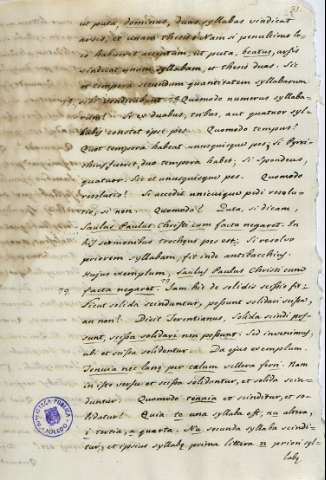 ut puta, dominus, duas syllabas vindicat
arsis, et unam thesis: Nam si penultimo lo-
co habuerit accentum, ut puta, beatus, arsis
vindicat unam syllabam, et thesis duas. Sic
et tempora secundum quantitatem syllabarum
sibi vindicabunt. 78 Quomodo numerus syllaba-
rum? Si ex duabus, tribus, aut quatuor syl-
labis constat ipse pes. Quomodo tempus?
Quot tempora habeat unusquisque pes; si Pyrri-
chius fuerit, duo tempora habet; si Spondeus,
quatuor. Sic et unusquisque pes. Quomodo
resolutio? Si accedit unicuique pedi resolu-
tio, si non. Quomodo? Puta, si dicam,
Saulus Paulus Christi cum facta negaret. In
his sermonibus trochaeus pes est; Si resolvo
priorem syllabam, fit inde
Hujus exemplum, Saulus Paulus Christi cum
79. facta negaret. 79 Iam hic de solidis scissio fit.
Sicut solida scinduntur, possunt solidari scissa,
an non? Dicit Terentianus, Solida scindi pos-
sunt, scissa solidari non possunt. Sed invenimus,
ubi et scissa solidentur. Da ejus exemplum.
Tenuia nec lanae per calum vellera ferri. Nam
in isto versu et scissa solidantur, et solida scin-
duntur. Quomodo tennia et scinditur, et so-
lidatur? Quia te una syllaba est, nu altera,
i tertia, a quarta. Nu secunda syllaba scindi-
tur, et ipsius syllabae prima littera n priori syl-
labae
BIBLIOTECA PUBLICA
TOLEDO